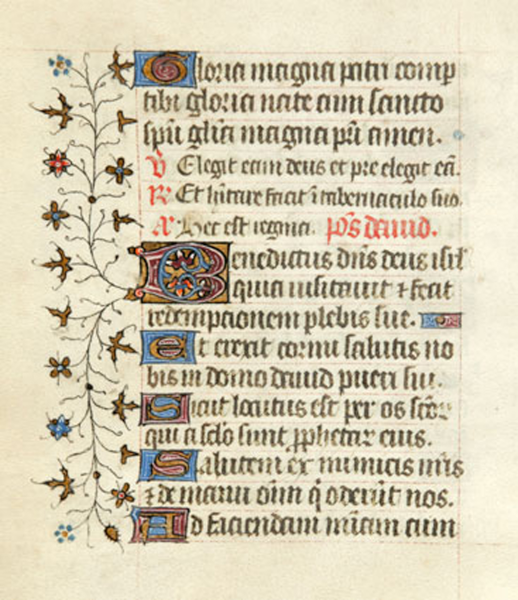 Gloria magna patri comp
tibi gloria nate cum sancto
spū glīa magna pr̄i amen.
V̄ Elegit eam deus et pre elegit eā.
R̄ Et hītare facit ī tabernaculo suo.
A Hec est regina. p̄s dauid.
Benedictus dn̄s deus isrl̄
quia uisitauit ⁊ fecit
redempcionem plebis sue.
Et erexit cornu salutis no
bis in domo dauid pueri sui.
Sicut locutus est per os scōr
qui a sclō sunt ꝓphetar eius.
Salutem ex inimicis nr̄is
⁊ de manu oīm q̄ oderūt nos.
Ad faciendam mīam cum